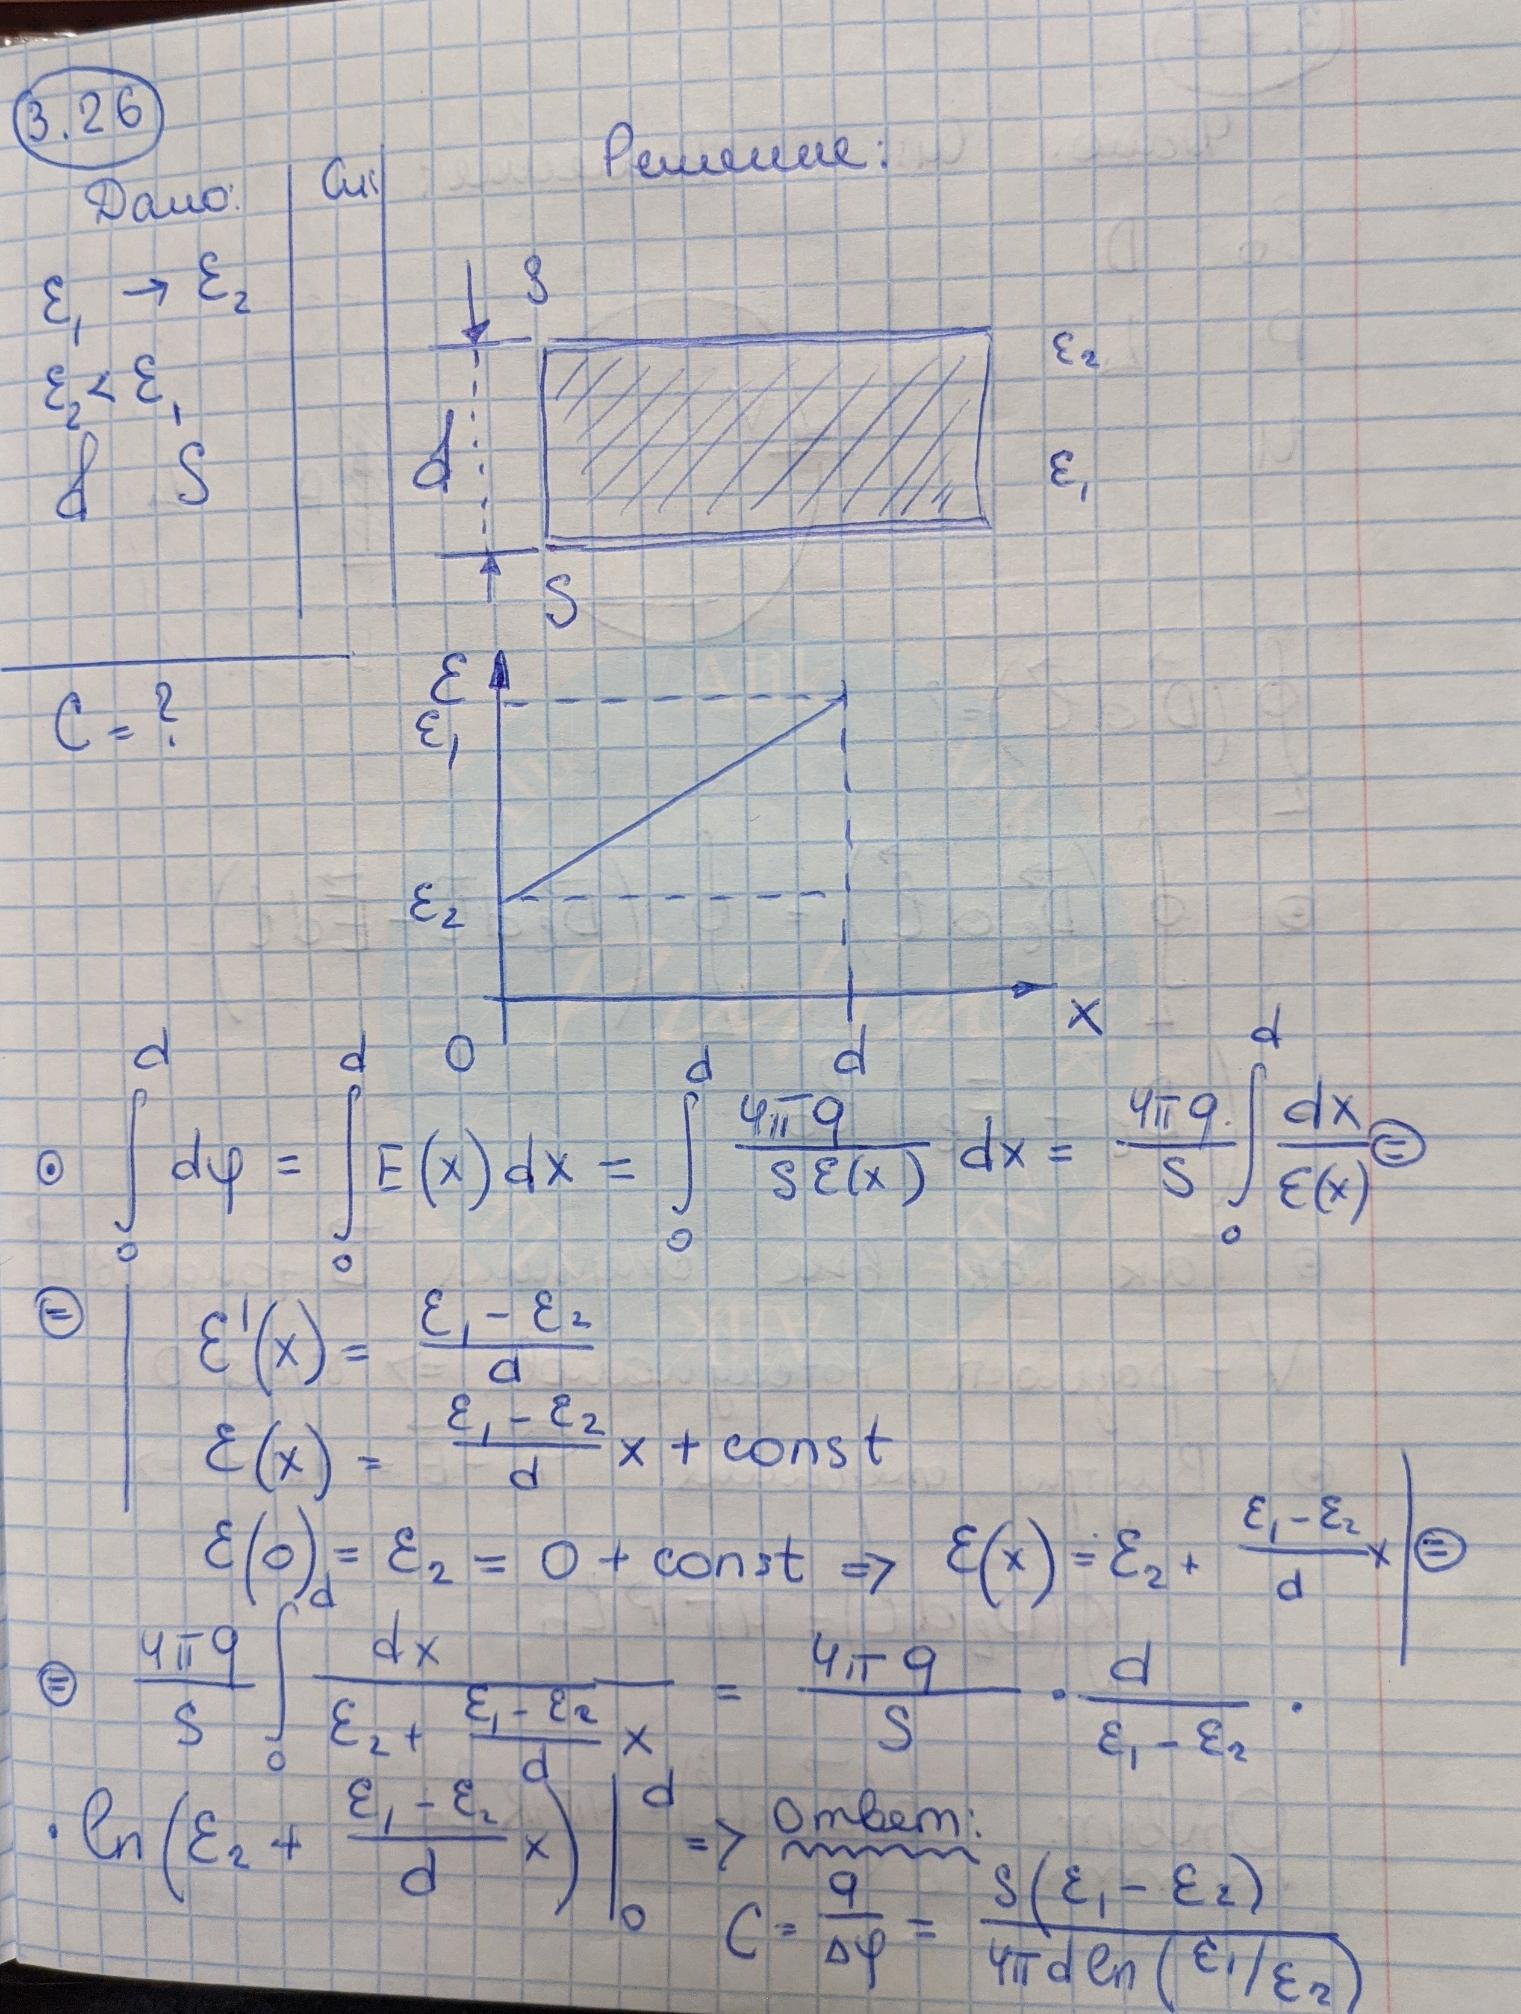 3.26
Дано:
Си:
Решение:
ε₁ → ε₂
ε₂ < ε₁
d S
C = ?
S
d
S
ε₂
ε₁
ε
ε₁
ε₂
0
d
x
∫₀ᵈ dφ = ∫₀ᵈ E(x) dx = ∫₀ᵈ 4πq / Sε(x) dx = 4πq / S ∫₀ᵈ dx / ε(x) ⊜
⊜ | ε'(x) = (ε₁ - ε₂) / d
ε(x) = (ε₁ - ε₂) / d x + const
ε(0) = ε₂ = 0 + const => ε(x) = ε₂ + (ε₁ - ε₂) / d x | ⊜
⊜ 4πq / S ∫₀ᵈ dx / (ε₂ + (ε₁ - ε₂) / d x) = 4πq / S · d / (ε₁ - ε₂) ·
· ln(ε₂ + (ε₁ - ε₂) / d x) |₀ᵈ => Ответ:
C = q / Δφ = S(ε₁ - ε₂) / 4πd ln(ε₁/ε₂)